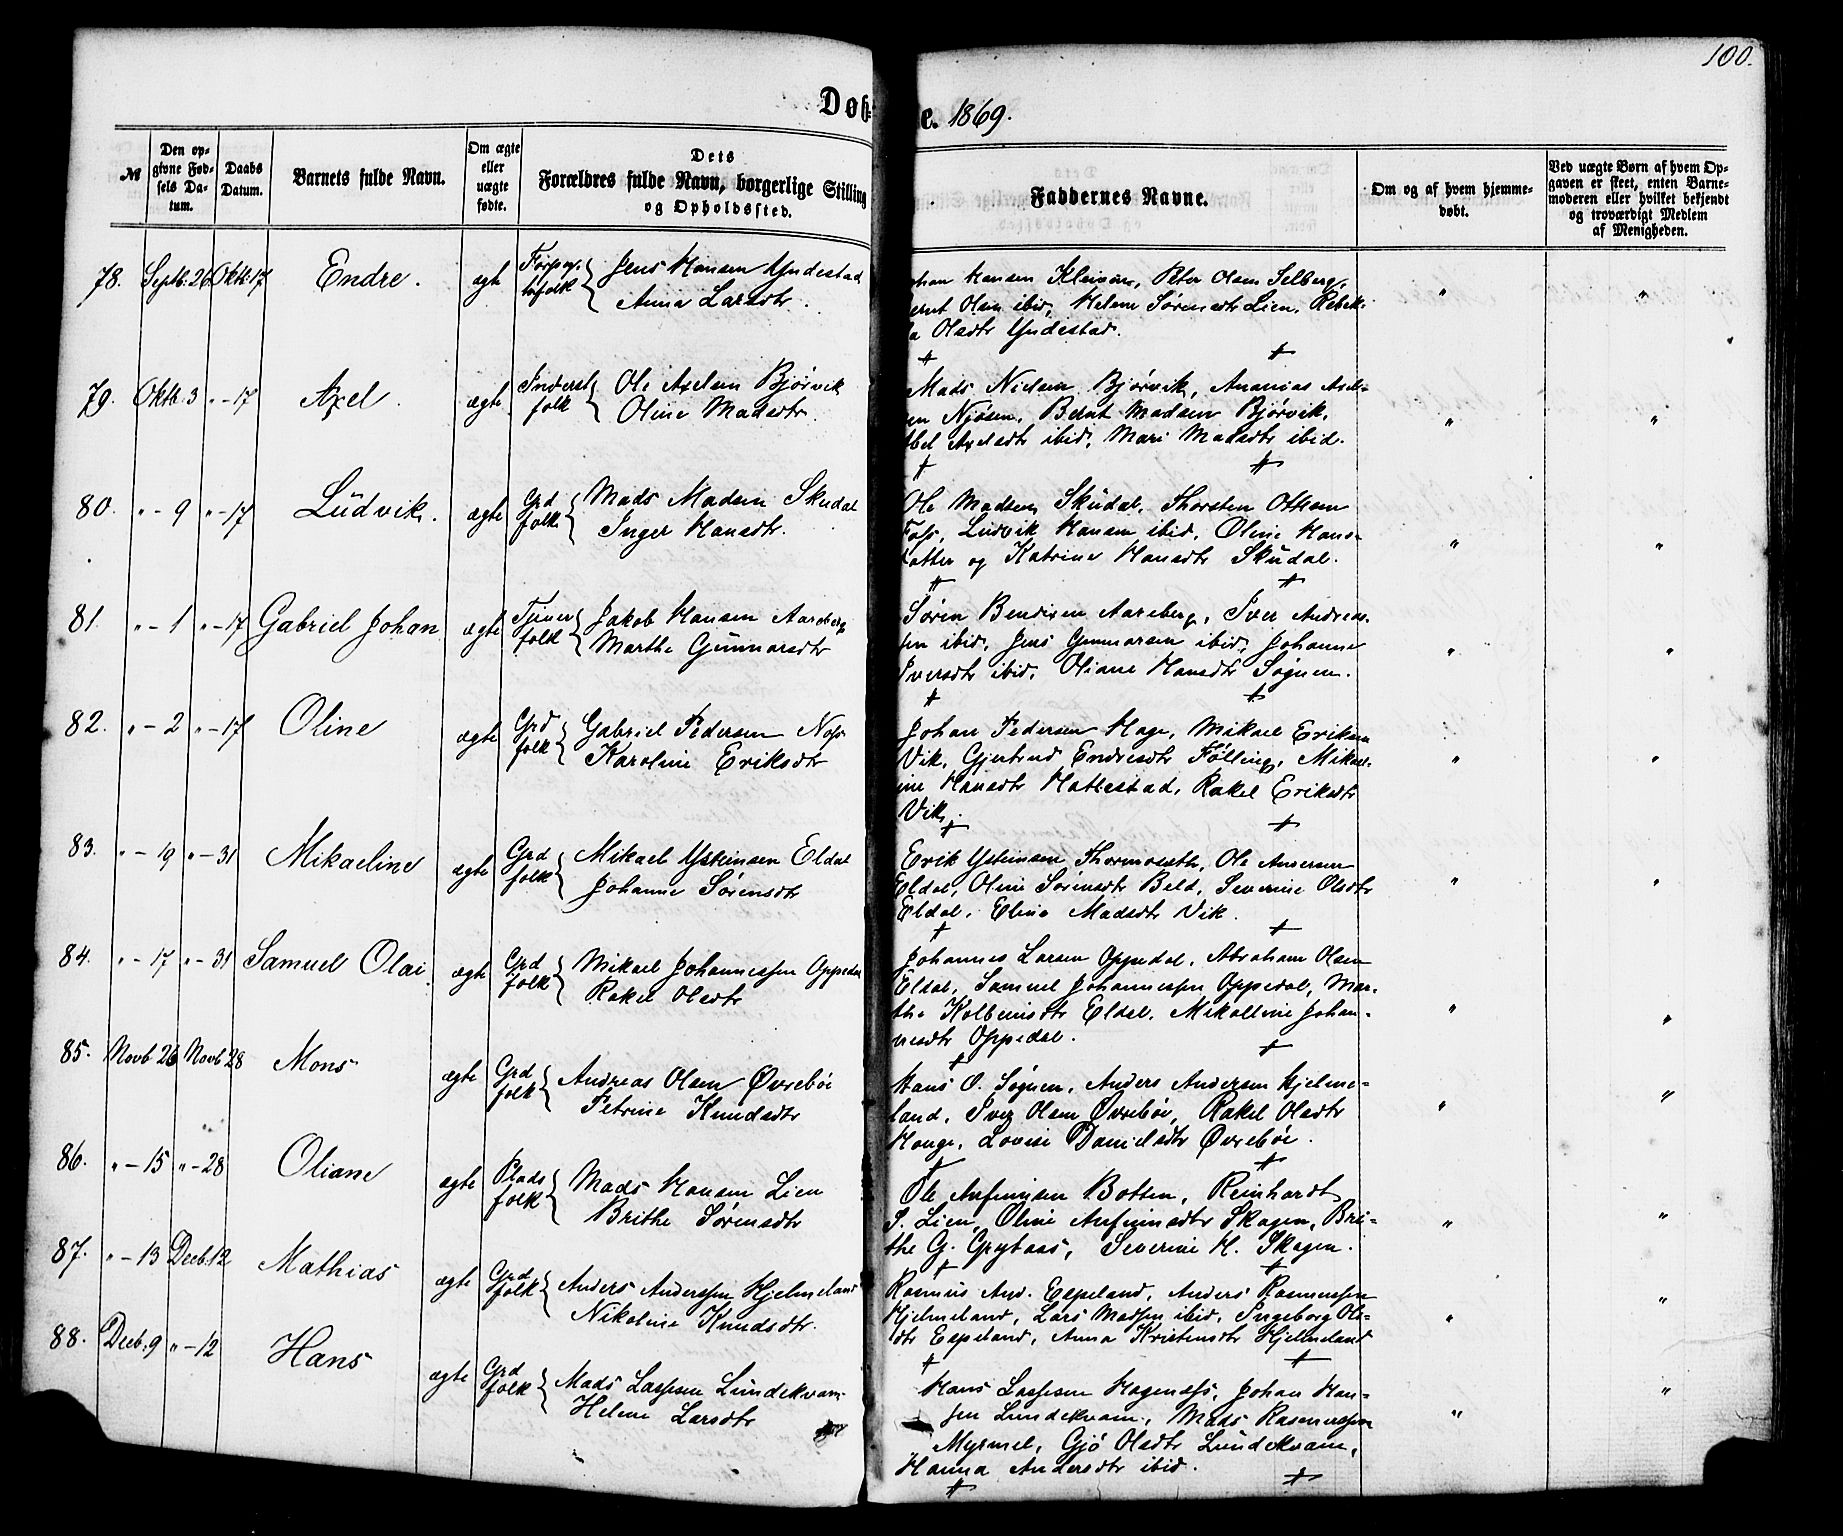 100.
Døb- e. 1869.
№ Den op- givne Fød- sels Da- tum. Daabs Datum. Barnets fulde Navn. Om ægte eller uægte fødte. Dets Forældres fulde Navn, borgerlige Stilling og Opholdssted. Faddernes Navne. Om og af hvem hjemme- døbt. Ved uægte Børn af hvem Op- gaven er skeet, enten Barne- moderen eller hvilket bekjendt og troværdigt Medlem af Menigheden.
78. Septb. 26 Oktb. 17 Endre. ægte folk { Jens Hansen Yndestad
Anna Larsdtr.
Hansen Kleivene, Peter Olsen Selberg,
Olsen ibid, Helene Sørensdtr Lien, Rebek-
Olsdtr Yndestad.
79. Oktb. 3 " - 17 Axel. ægte Inderst folk { Ole Axelsen Bjørvik
Oline Madsdtr.
Mads Nielsen Bjørvik, Ananias Axel-
en Njøsen, Bernt Madsen Bjørvik,
Axelsdtr ibid, Mari Madsdtr ibid.
80. " - 9 " - 17 Ludvik. ægte Grd folk { Mads Madsen Skudal
Inger Hansdtr.
Ole Madsen Skudal, Thorsten Ottesen
Foss, Ludvik Hansen ibid, Oline Hans-
datter og Katrine Hansdtr Skudal.
81. " - 1 " - 17 Gabriel Johan ægte Tjener folk { Jakob Hansen Aarberg
Marthe Gunnarsdtr
Søren Bendixen Aareberg, Iver Andreas-
sen ibid, Jens Gunnarsen ibid, Johanne
Iversdtr ibid, Oliane Hansdtr Sognen.
82. " - 2 " - 17 Oline ægte Grd folk { Gabriel Pedersen Noss
Karoline Eriksdtr
Johan Pedersen Hage, Mikael Eriksen
Vik, Gjertrud Endresdtr Følling, Mikael-
ine Hansdtr Hatlestad, Rakel Eriksdtr
Vik.
83. " - 19 " - 31 Mikaeline ægte Grd folk { Mikael Ysteinsen Eldal
Johanne Sørensdtr
Erik Ysteinsen, Ole Andersen
Eldal, Oline Sørensdtr Beld, Severine Olsdtr
Eldal, Eline Madsdtr Vik.
84. " - 17 " - 31 Samuel Olai ægte Grd folk { Mikael Johannessen Oppedal
Rakel Olsdtr
Johannes Larsen Oppedal, Abraham Olsen
Eldal, Samuel Johannessen Oppedal, Mar-
the Kolbeinsdtr Eldal, Mikaline Johan-
nesdtr Oppedal.
85. Novb 26 Novb 28 Mons ægte Grd folk { Andreas Olsen Øvrebøe
Petrine Knudsdtr
Hans O. Sognen, Anders Andersen Hjelme-
land, Iver Olsen Øvrebøe, Rakel Olsdtr
Hauge, Lovise Danielsdtr Øvrebøe.
86. " - 15 " - 28 Oliane ægte Plads folk { Mads Hansen Lien
Brithe Sørensdtr
Ole Anfinnsen Botten, Reinhardt
S. Lien, Oline Anfinnsdtr Skagen, Bri-
the G. Grytaas, Severine H. Skagen.
87. " - 13 Decb. 12 Mathias ægte Grd folk { Anders Anderssen Hjelmeland
Nikoline Knudsdtr.
Rasmus And. Espeland, Anders Rasmussen
Hjelmeland, Lars Madsen ibid, Ingeborg Ols-
dtr Espeland, Anna Kristensdtr Hjelmeland
88. Decb. 9 " - 12 Hans ægte Grd folk { Mads Lassesen Lundekvam
Helene Larsdtr
Hans Lassesen Hageness, Johan Han-
sen Lundekvam, Mads Rasmussen
Myrmel, Gjø Olsdtr Lundekvam,
Hanna Andersdtr ibid.